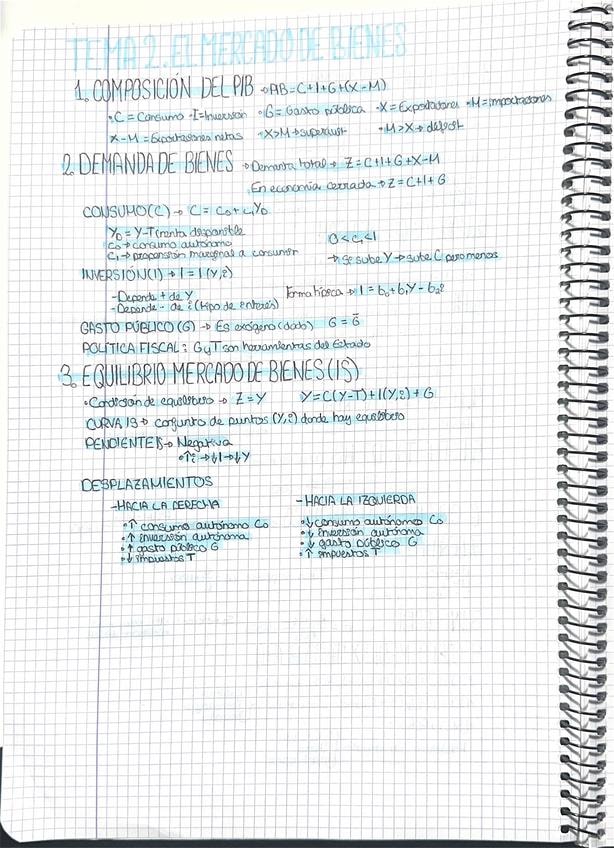 TEMA 2. EL MERCADO DE BIENES
1. COMPOSICIÓN DEL PIB → PIB = C+I+G+(X-M)
• C = Consumo • I = Inversión • G = Gasto público • X = Exportaciones • M = importaciones
X-M = Exportaciones netas • X>M → superávit • M>X → déficit
2. DEMANDA DE BIENES → Demanda total → Z = C+I+G+X-M
En economía cerrada → Z = C+I+G
CONSUMO (C) → C = C₀ + C₁Y_D
Y_D = Y-T (renta disponible)
C₀ → consumo autónomo 0 < C₁ < 1
C₁ → propensión marginal a consumir → Si sube Y → sube C pero menos
INVERSIÓN (I) → I = I (Y, i)
- Depende + de Y Forma típica → I = b₀ + b₁Y - b₂i
- Depende - de i (tipo de interés)
GASTO PÚBLICO (G) → Es exógeno (dado) G = G̅
POLÍTICA FISCAL: G y T son herramientas del Estado
3. EQUILIBRIO MERCADO DE BIENES (IS)
• Condición de equilibrio → Z = Y Y = C(Y-T) + I(Y, i) + G
CURVA IS → conjunto de puntos (Y, i) donde hay equilibrio
PENDIENTE IS → Negativa
• ↑i → ↓I → ↓Y
DESPLAZAMIENTOS
- HACIA LA DERECHA - HACIA LA IZQUIERDA
• ↑ consumo autónomo C₀ • ↓ consumo autónomo C₀
• ↑ inversión autónoma • ↓ inversión autónoma
• ↑ gasto público G • ↓ gasto público G
• ↓ impuestos T • ↑ impuestos T